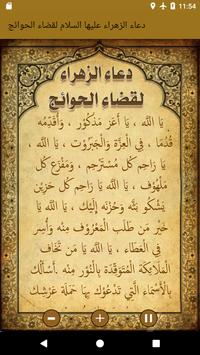 11:54
دعاء الزهراء عليها السلام لقضاء الحوائج
دعاء الزهراء
لقضاء الحوائج
يَا اللَّهُ ، يَا أَعَزَّ مَذْكُوْرٍ ، وَأَقْدَمَهُ
قِدَمًا ، فِي الْعِزَّةِ وَالْجَبَرُوْتِ ، يَا اللَّهُ
، يَا رَاحِمَ كُلِّ مُسْتَرْحِمٍ ، وَمَفْزَعَ كُلِّ
مَلْهُوْفٍ ، يَا اللَّهُ ، يَا رَاحِمَ كُلِّ حَزِيْنٍ
يَشْكُوْ بَثَّهُ وَحُزْنَهُ إِلَيْكَ ، يَا اللَّهُ ، يَا
خَيْرَ مَنْ طُلِبَ الْمَعْرُوْفُ مِنْهُ وَأَسْرَعَهُ
فِي الْعَطَاءِ ، يَا اللَّهُ ، يَا مَنْ تَخَافُ
الْمَلَائِكَةُ الْمُتَوَقِّدَةُ بِالنُّوْرِ مِنْهُ ، أَسْأَلُكَ
بِالْأَسْمَاءِ الَّتِي يَدْعُوْكَ بِهَا حَمَلَةُ عَرْشِكَ